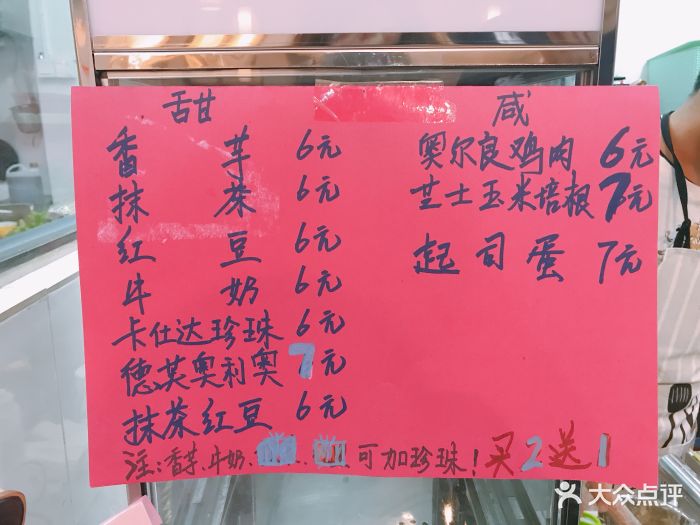 甜 咸
香芋 6元 奥尔良鸡肉 6元
抹茶 6元 芝士玉米培根 7元
红豆 6元 起司蛋 7元
牛奶 6元
卡仕达珍珠 6元
德芙奥利奥 7元
抹茶红豆 6元
注:香芋、牛奶、 可加珍珠! 买2送1
大众点评